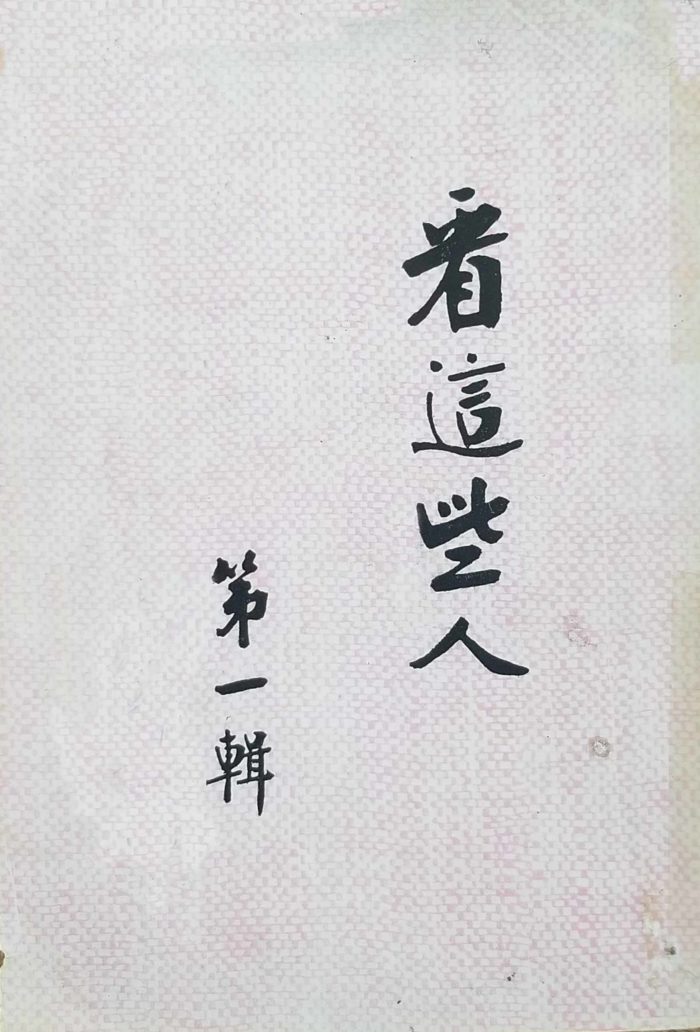 看這些人
第一輯